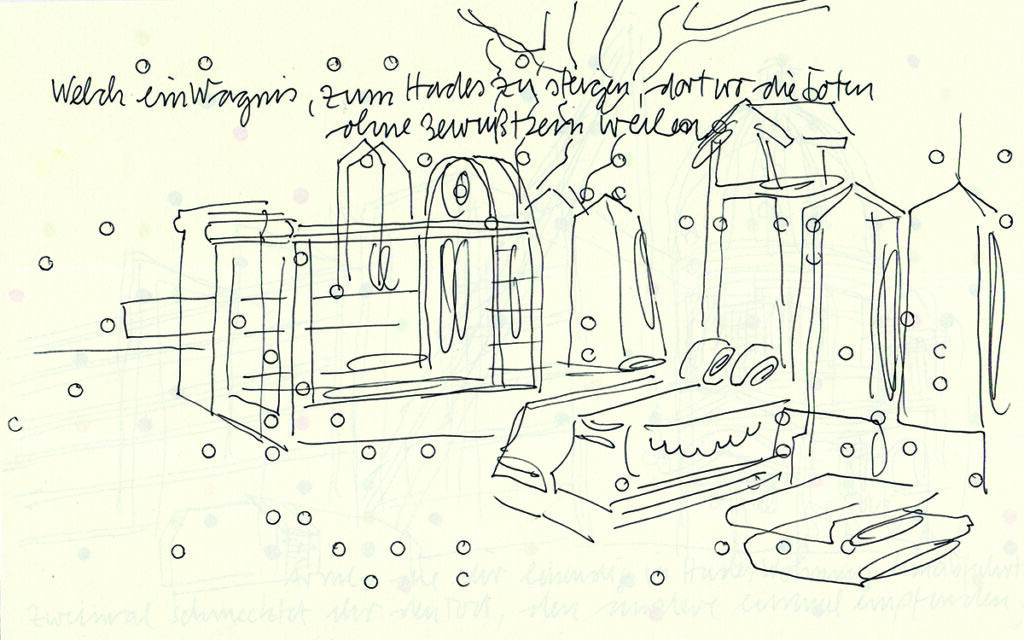 Welch ein Wagnis, zum Hades zu steigen, dort wo die Toten
ohne Bewußtsein weilen
Arme, die ihr lebendig in Hades Wohnung
Zweimal schmecktet ihr den Tod, den andere einmal empfinden